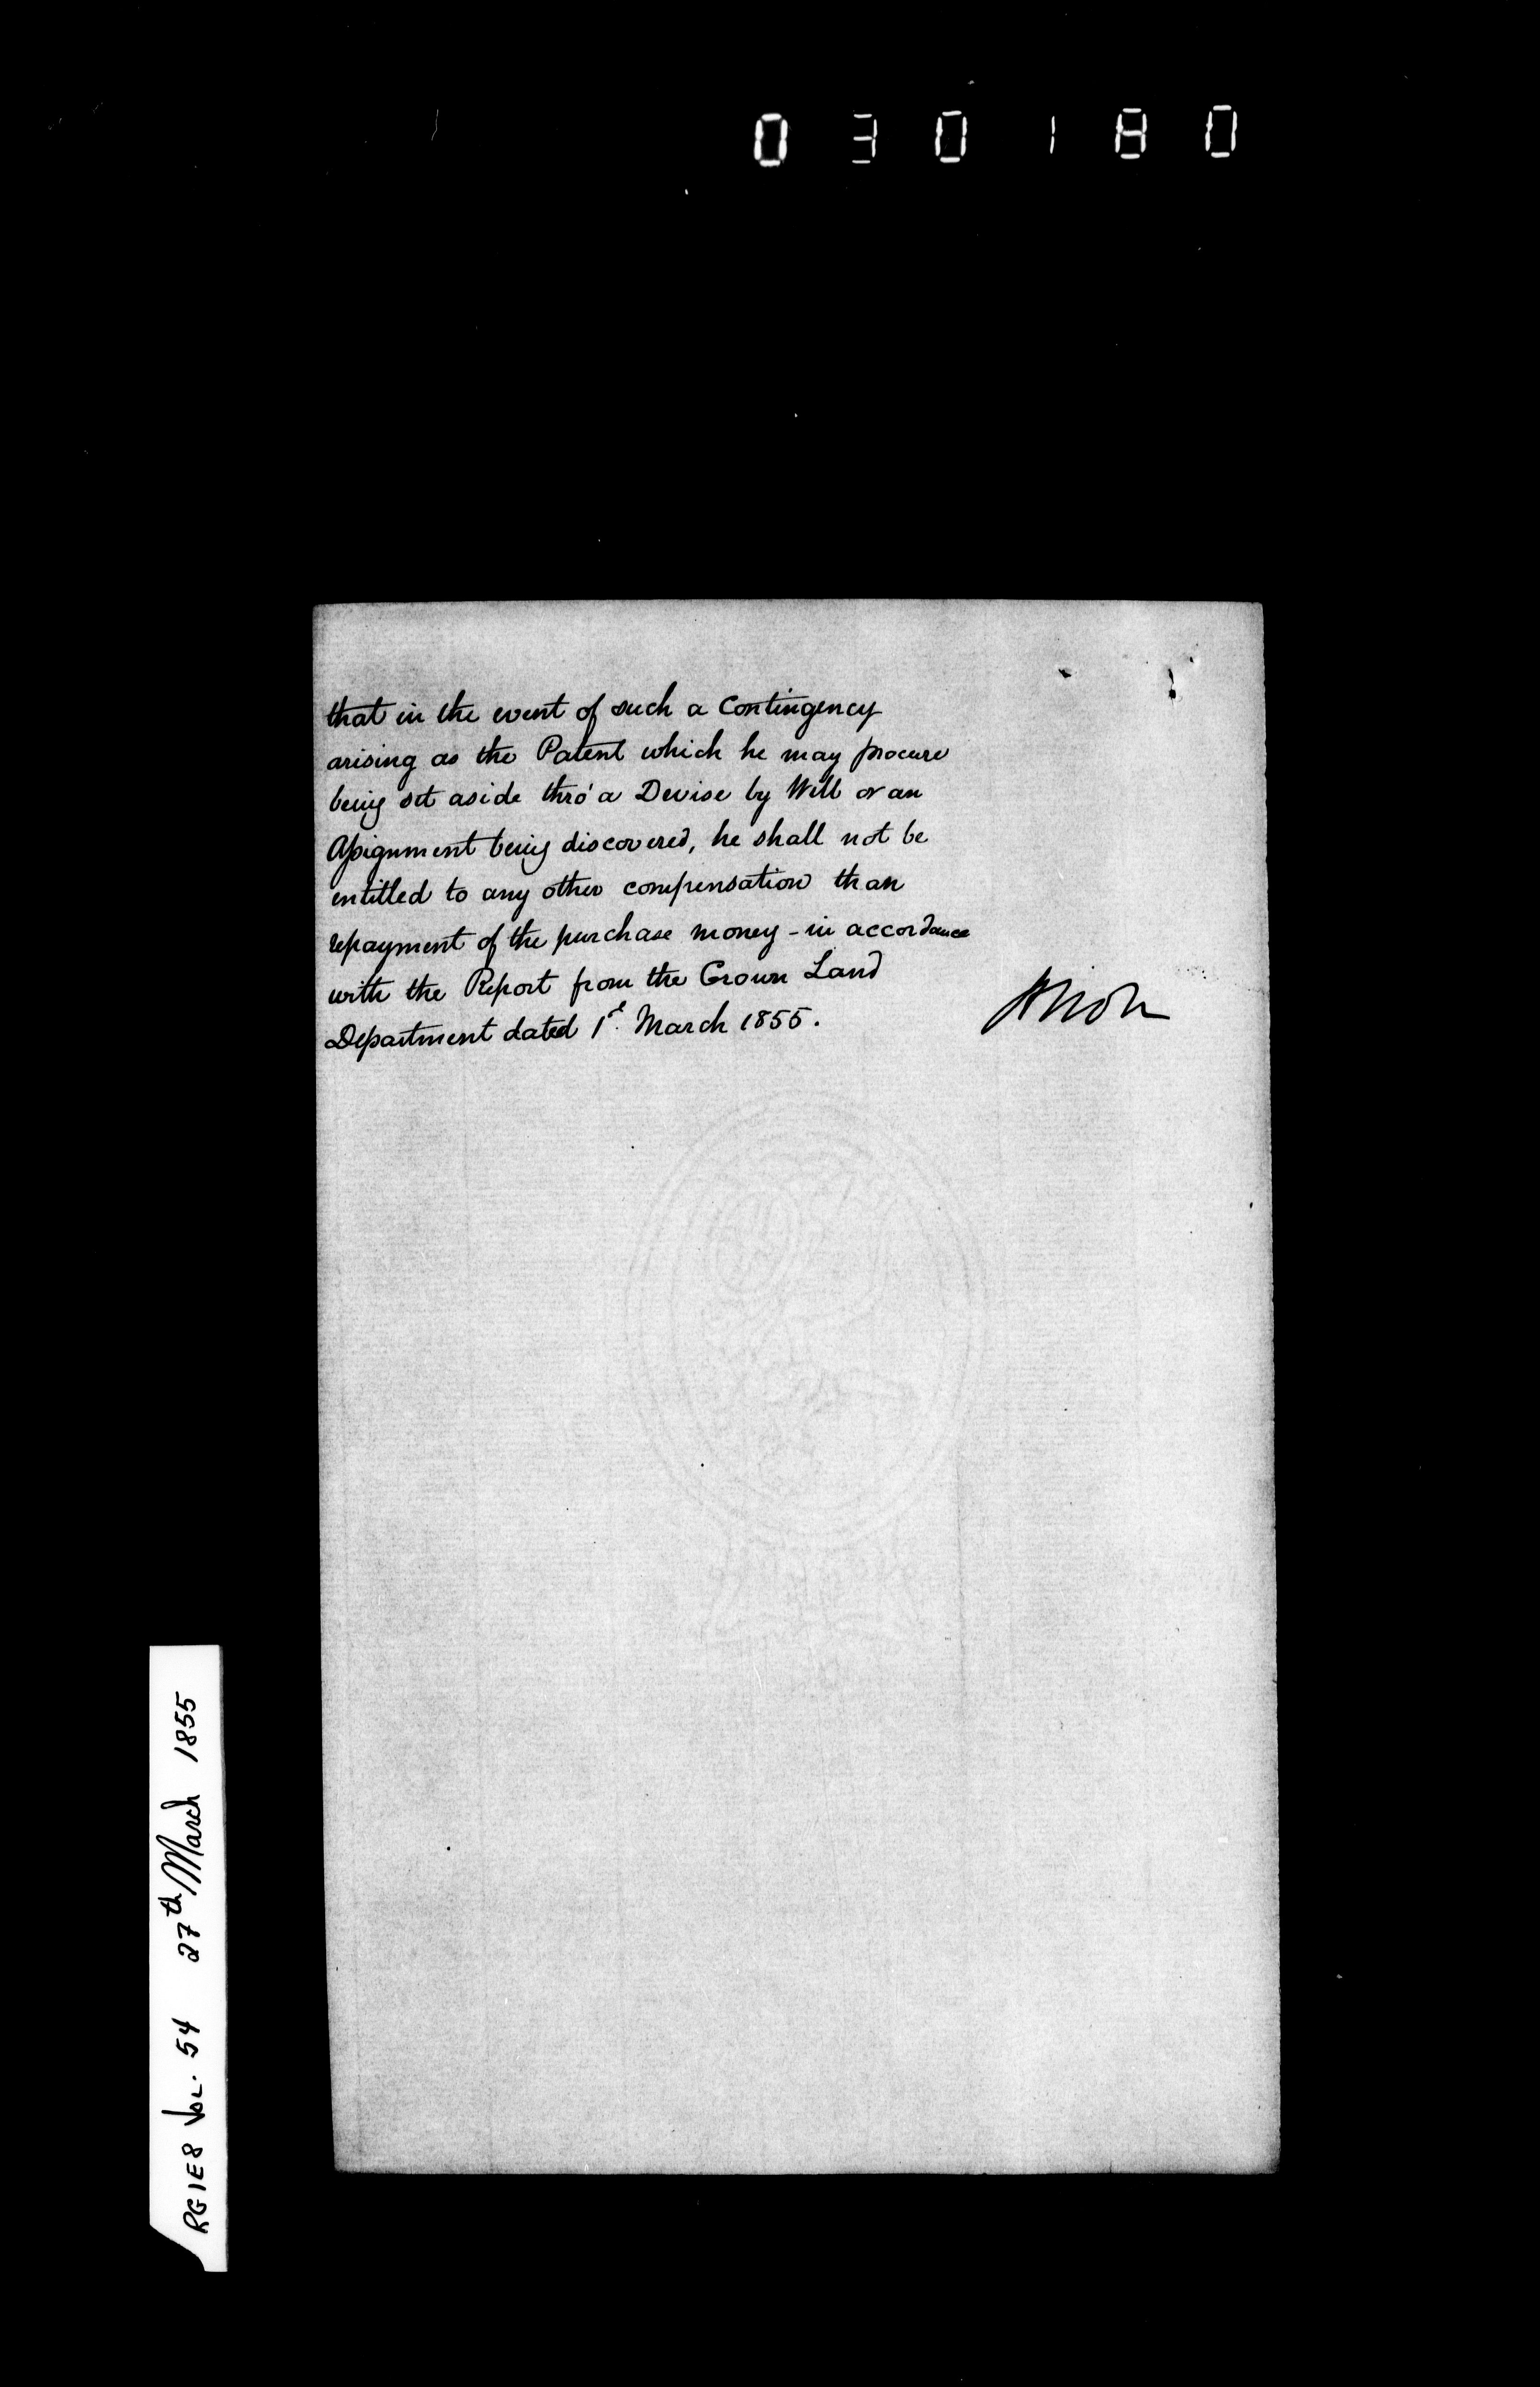 0 3 0 1 8 0
that in the event of such a Contingency
arising as the Patent which he may procure
being set aside thro' a Devise by Will or an
Assignment being discovered, he shall not be
entitled to any other compensation than
repayment of the purchase money - in accordance
with the Report from the Crown Land
Department dated 1st. March 1855.
RG1E8 VOL. 54 27th March 1855